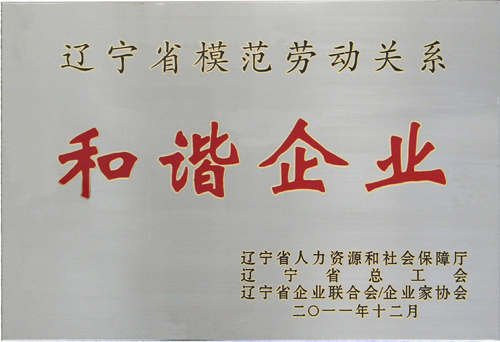 辽宁省模范劳动关系
和谐企业
辽宁省人力资源和社会保障厅
辽宁省总工会
辽宁省企业联合会/企业家协会
二〇一一年十二月